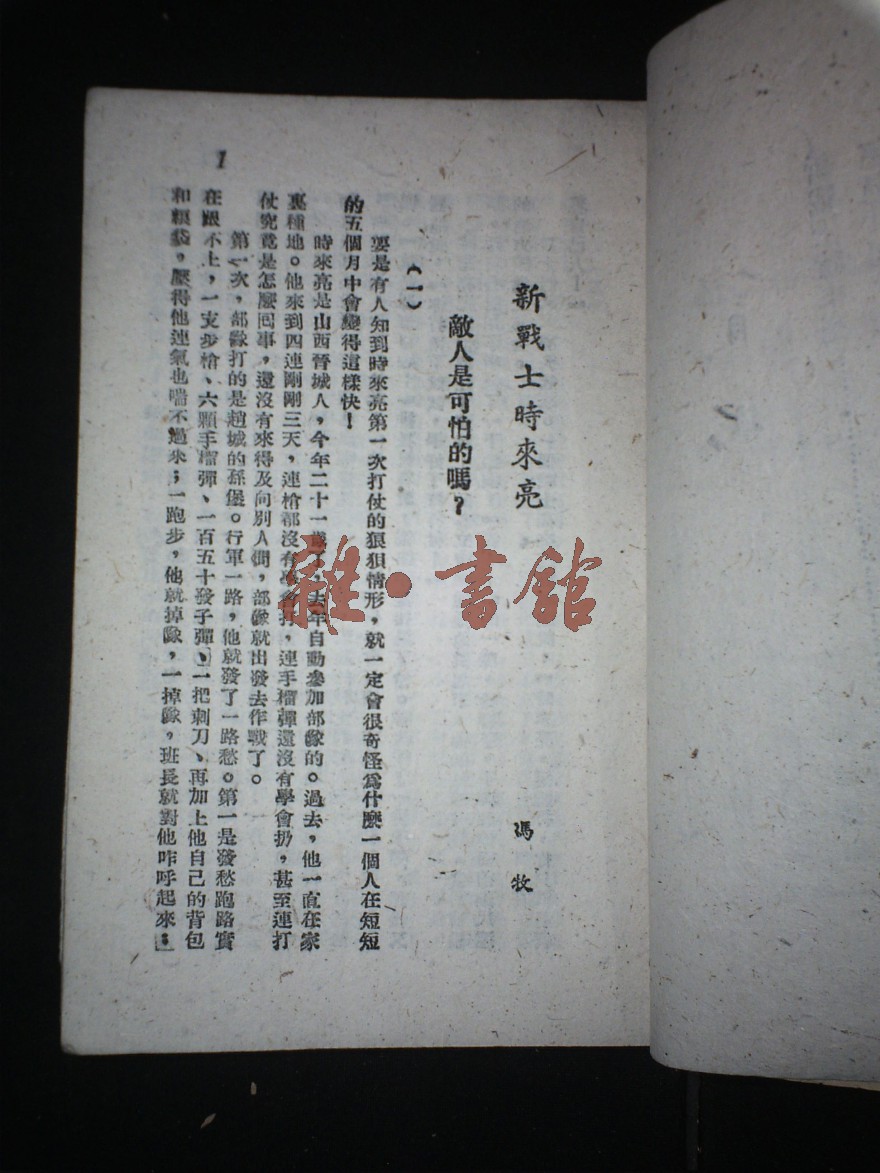 新戰士時來亮
馮牧
敵人是可怕的嗎?
(一)
要是有人知到時來亮第一次打仗的狼狽情形,就一定會很奇怪爲什麼一個人在短短
的五個月中會變得這樣快!
時來亮是山西晉城人,今年二十一歲了,去年自動參加部隊的。過去,他一直在家
裏種地。他來到四連剛剛三天,連槍都沒有學會打,連手榴彈還沒有學會扔,甚至連打
仗究竟是怎麼囘事,還沒有來得及向別人問,部隊就出發去作戰了。
第一次,部隊打的是趙城的孫堡。行軍一路,他就發了一路愁。第一是發愁跑路實
在跟不上,一支步槍、六顆手榴彈、一百五十發子彈、一把刺刀、再加上他自己的背包
和糧袋,壓得他連氣也喘不過來;一跑步,他就掉隊,一掉隊,班長就對他咋呼起來:
1
雜·書館